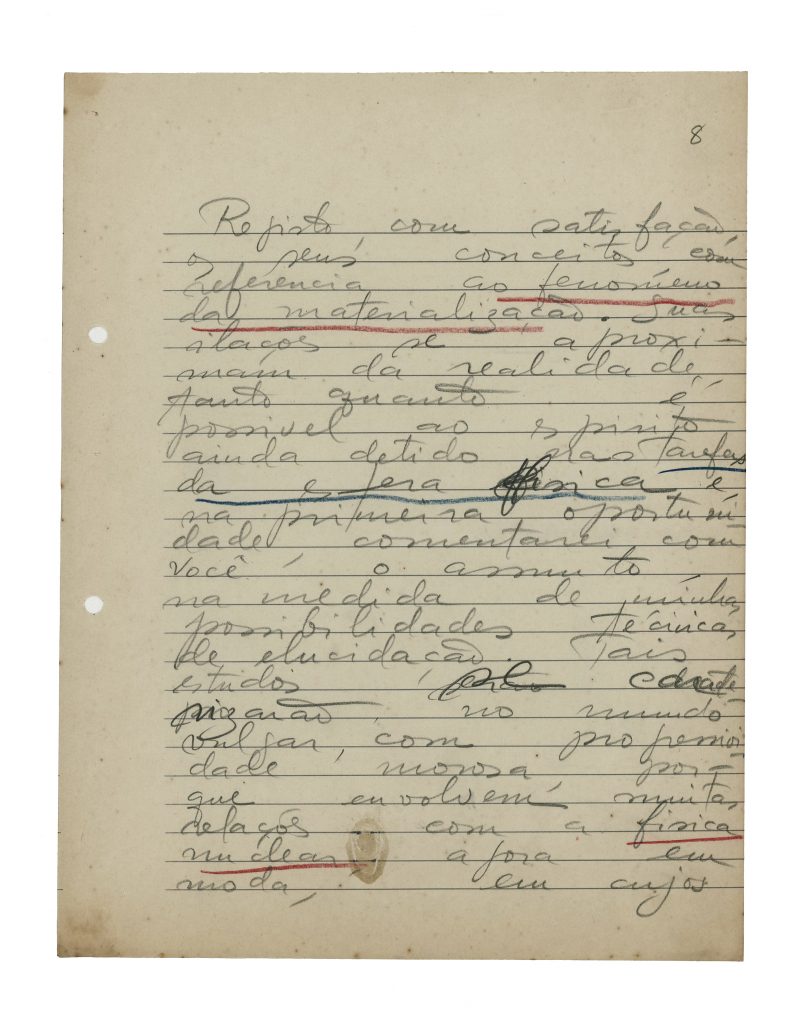 8
Registo com satisfação,
os seus conceitos com
referencia ao fenomeno
da materialização. Suas
ilações se aproxi-
mam da realidade,
tanto quanto é
possivel ao espirito
ainda detido nas tarefas
da esfera fisica e
na primeira oportuni
dade comentarei com
você o assunto
na medida de minhas
possibilidades técnicas
de elucidação. Tais
estudos
no mundo
vulgar, com
dade morosa por-
que envolvem muitas
relações com a fisica
nuclear, agora em
moda, em cujos